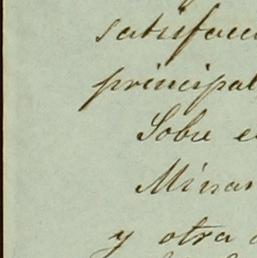 satisfacci
principal
Sobre e
Minas
y otra